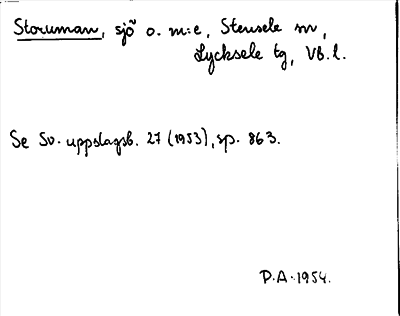 Storuman, sjö o. m:e, Stensele sn,
Lycksele tg, Vb. l.
Se Sv. uppslagsb. 27 (1953), sp. 863.
P.A. 1954.